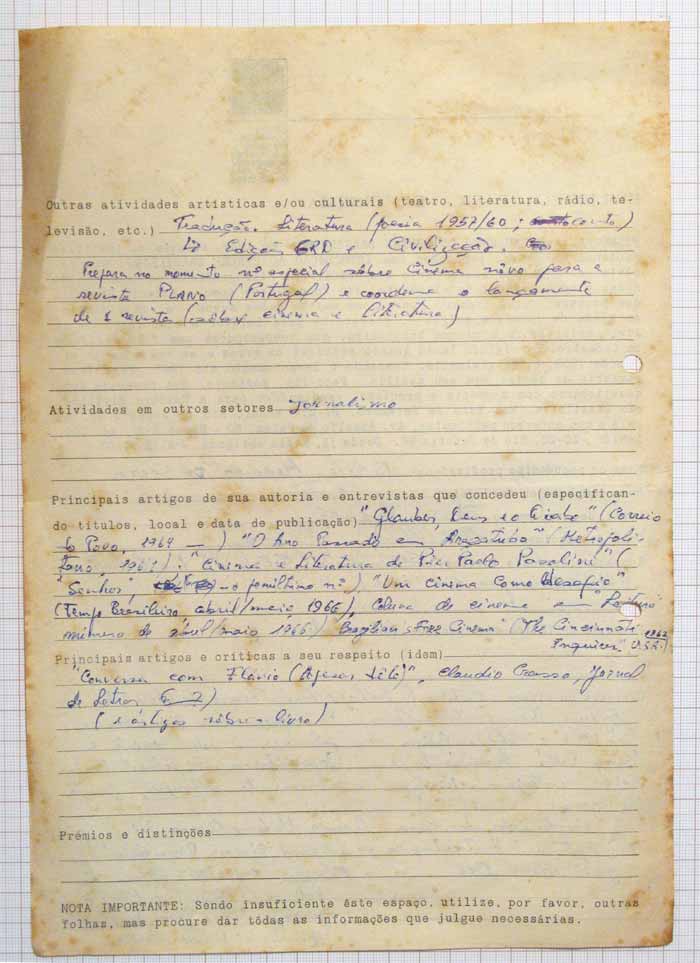 Outras atividades artísticas e/ou culturais (teatro, literatura, rádio, te-
levisão, etc.) Tradução. Literatura (poesia 1957/60; conto)
Edição GRD e Civilização.
Prepara no momento nº especial sôbre Cinema nôvo para a
revista PLANO (Portugal) e coordena o lançamento
de 1 revista (sôbre cinema e literatura)
Atividades em outros setores Jornalismo
Principais artigos de sua autoria e entrevistas que concedeu (especifican-
do títulos, local e data de publicação) "Glauber, Deus e o Diabo" (Correio
do Povo, 1964 — ) "O Ano Passado em (Metropoli-
tano, "Cinema e Literatura de Pier Paolo Pasolini" (
"Senhor", no penúltimo nº), "Um cinema como desafio"
(Tempo Brasileiro abril/maio, 1966), Coluna de cinema em
número de abril/maio 1966) "Brazilian's Free Cinema" (The Cincinnati
Enquirer, U.S.A.)
Principais artigos e críticas a seu respeito (idem)
"Conversa com Flávio (Apesar dêle)", Claudio Jornal
de Letras
( e artigos sôbre o livro)
Prêmios e distinções
NOTA IMPORTANTE: Sendo insuficiente êste espaço, utilize, por favor, outras
folhas, mas procure dar tôdas as informações que julgue necessárias.